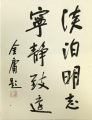 淡泊明志
寧静致遠
金庸題